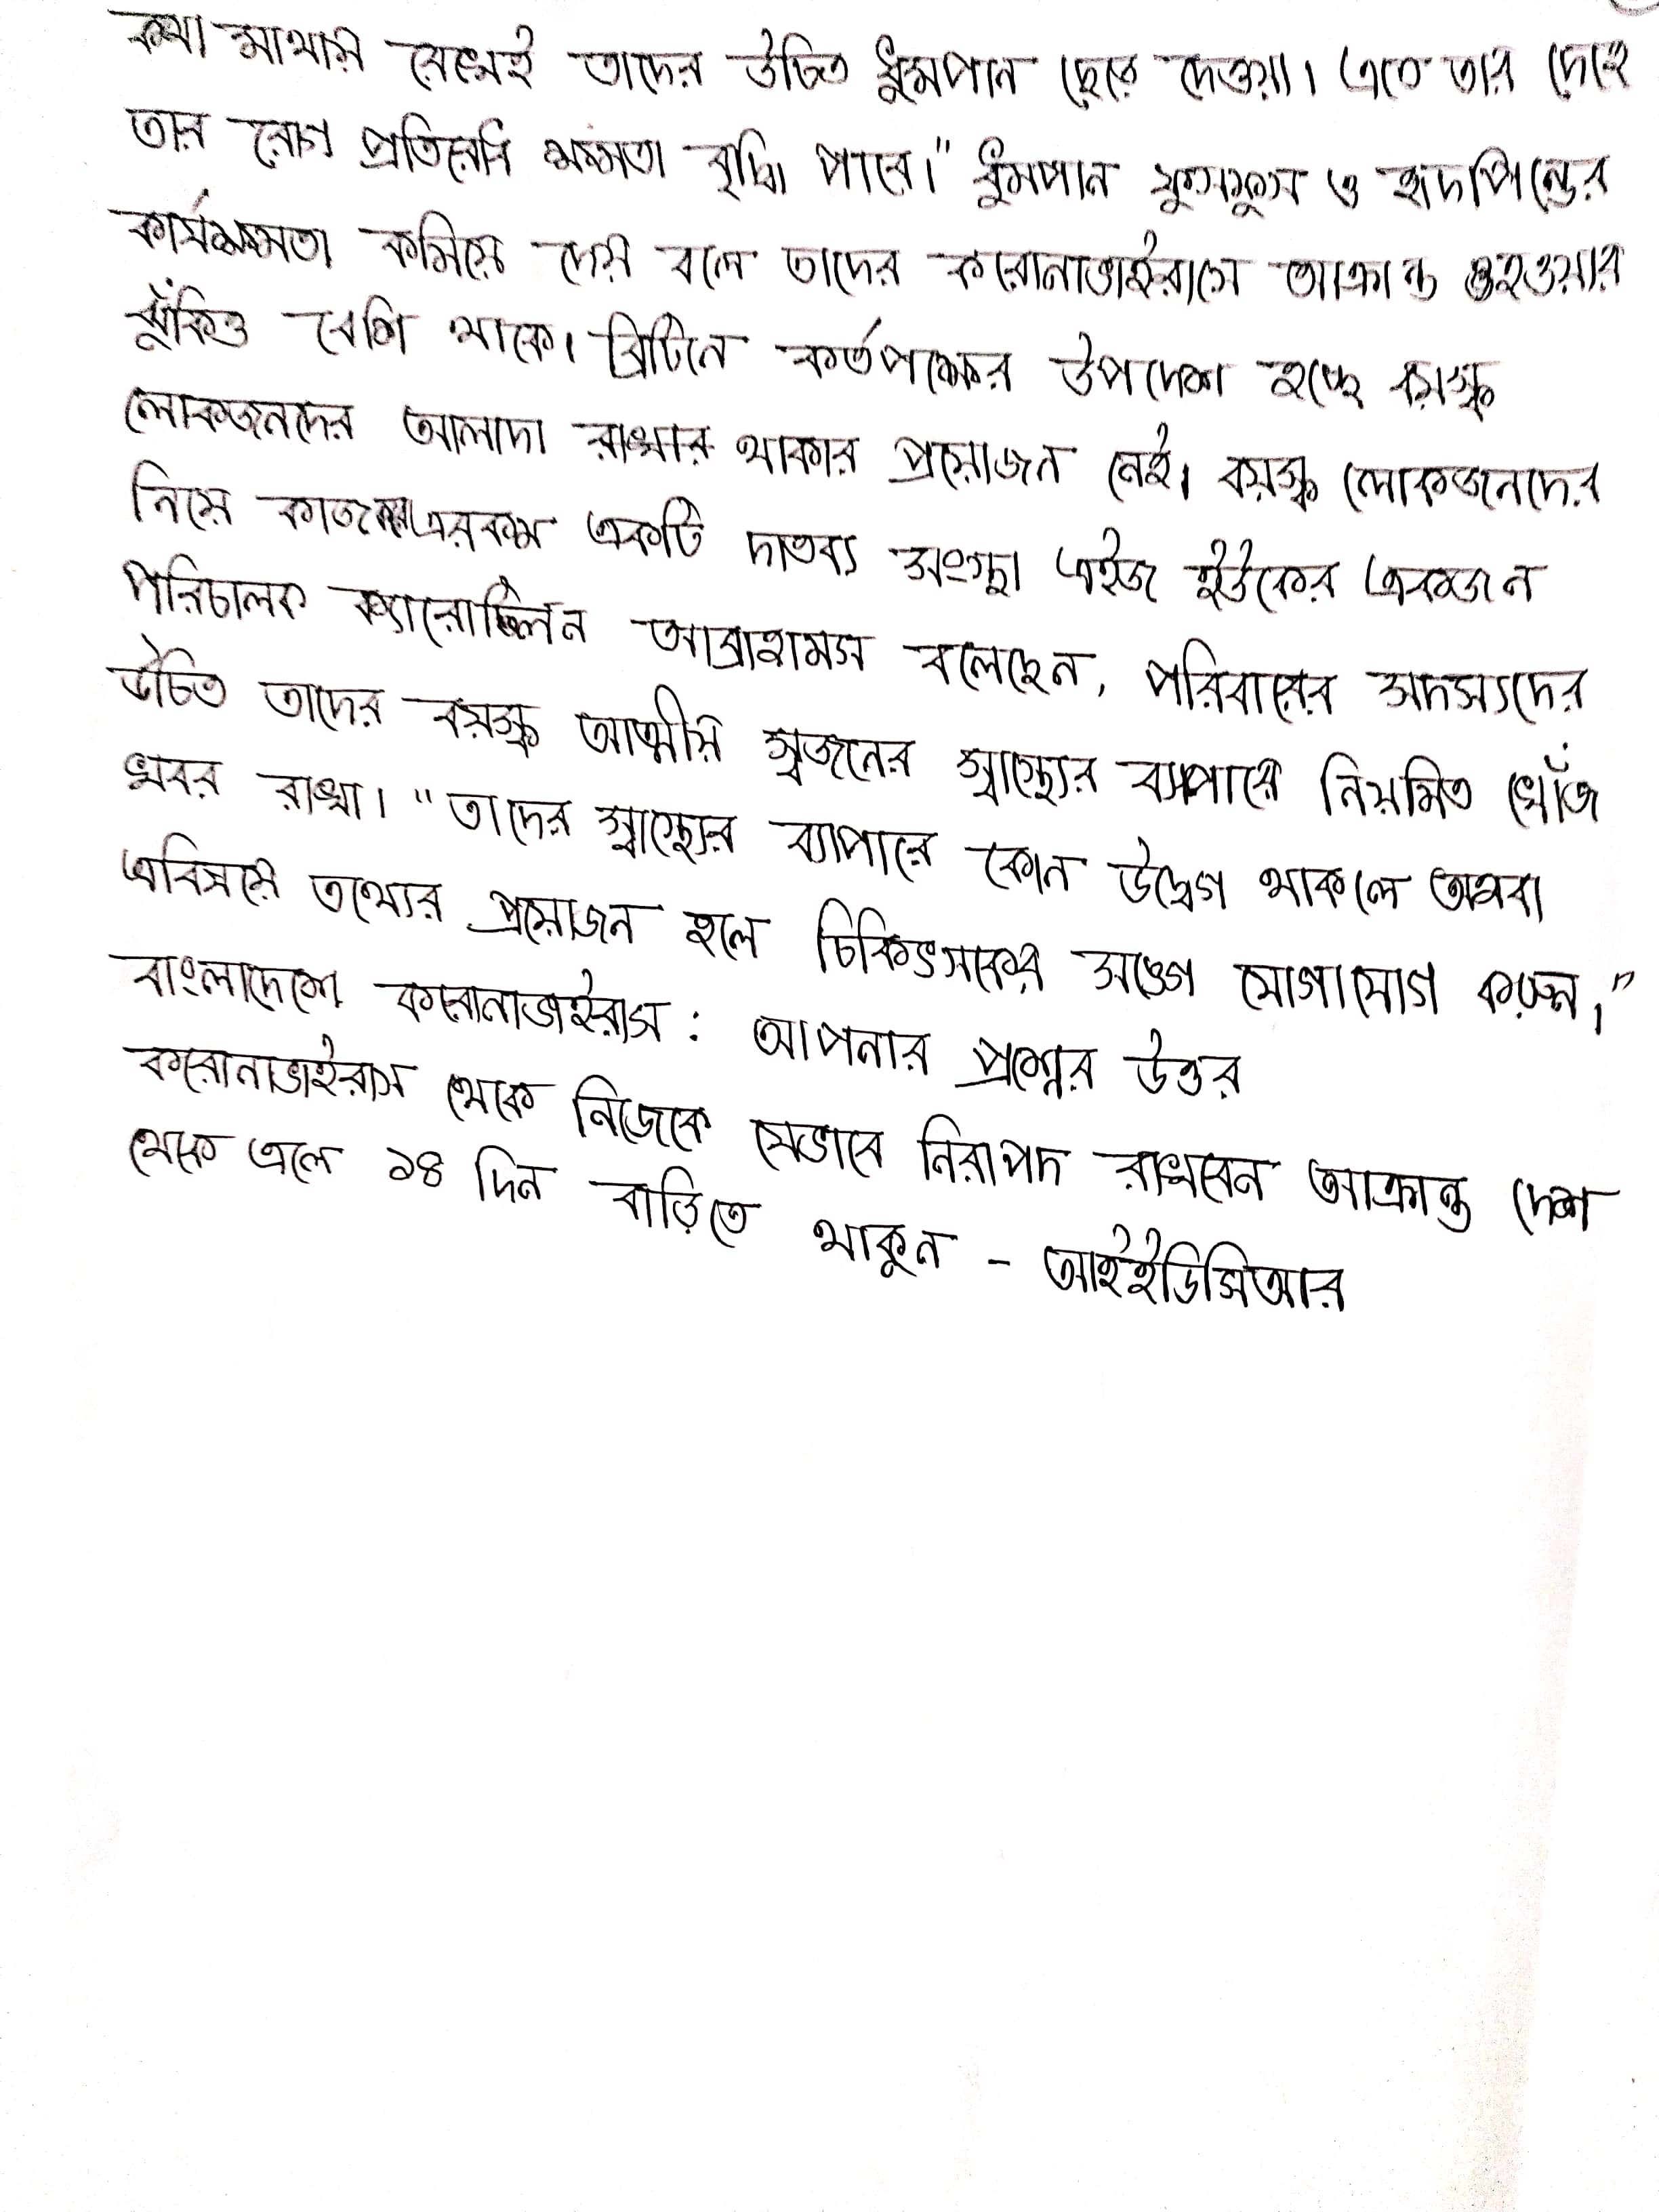 কথা মাথায় রেখেই তাদের উচিত ধুমপান ছেরে দেওয়া। এতে তার দেহে
তার রোগ প্রতিরোধ ক্ষমতা বৃদ্ধি পাবে।" ধুমপান ফুসফুস ও হৃদপিন্ডের
কার্যক্ষমতা কমিয়ে দেয় বলে তাদের করোনাভাইরাসে আক্রান্ত হওয়ার
ঝুঁকিও বেশি থাকে। ব্রিটিনে কর্তপক্ষের উপদেশ হচ্ছে বয়স্ক
লোকজনদের আলাদা রাখার থাকার প্রয়োজন নেই। বয়স্ক লোকজনদের
নিয়ে কাজ করে এরকম একটি দাতব্য সংস্থা এইজ ইউকের একজন
পরিচালক ক্যারোলিন আব্রাহামস বলেছেন, পরিবারের সদস্যদের
উচিত তাদের বয়স্ক আত্মীয় স্বজনের স্বাস্থ্যের ব্যাপারে নিয়মিত খোঁজ
খবর রাখা। "তাদের স্বাস্থ্যের ব্যাপারে কোন উদ্বেগ থাকলে অথবা
এবিষয়ে তথ্যের প্রয়োজন হলে চিকিৎসকের সঙ্গে যোগাযোগ করুন।"
বাংলাদেশে করোনাভাইরাস: আপনার প্রশ্নের উত্তর
করোনাভাইরাস থেকে নিজেকে যেভাবে নিরাপদ রাখবেন আক্রান্ত দেশ
থেকে এলে ১৪ দিন বাড়িতে থাকুন - আইইডিসিআর